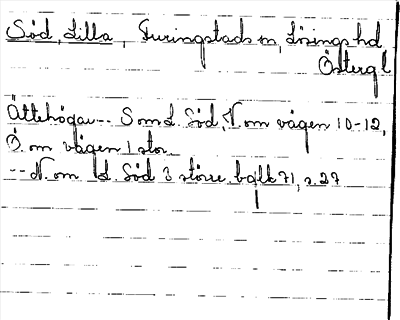 Söd, Lilla, Furingstads sn, Lösings hd,
Östergl
Ättehögar-- S om L. Söd, V. om vägen 10-12,
Ö. om vägen 1 stor
-- N. om L. Söd 3 större. 71, s. 27